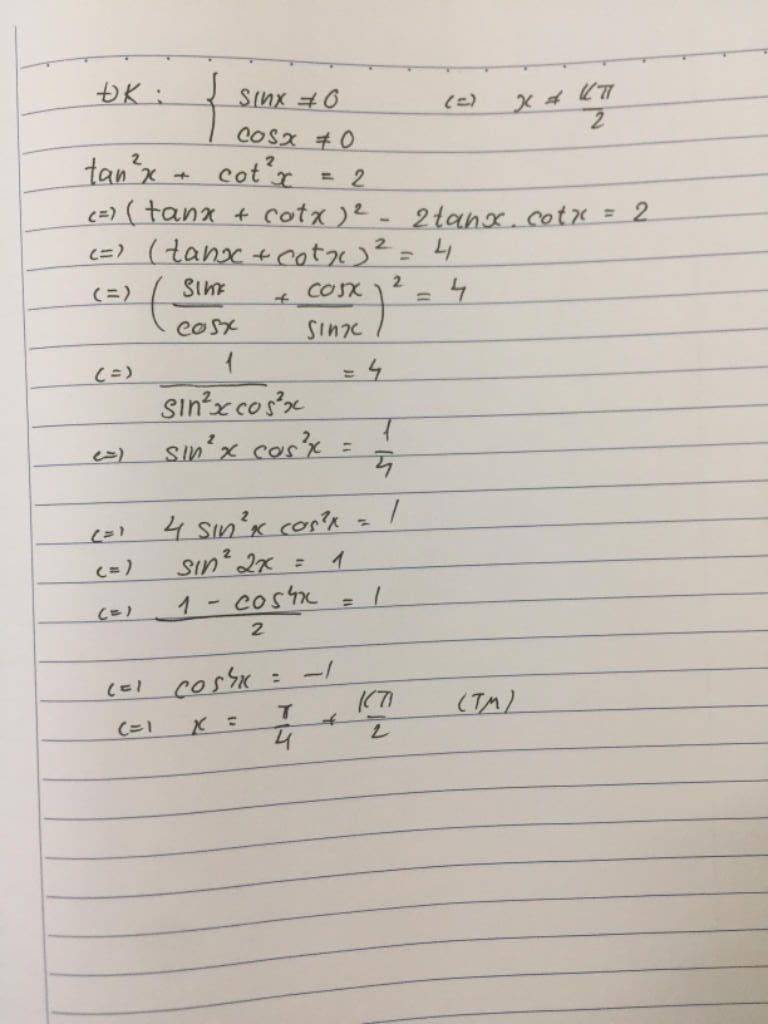 ĐK : { sinx ≠ 0 (=) x ≠ kπ/2
cosx ≠ 0
tan²x + cot²x = 2
(=) (tanx + cotx)² - 2tanx.cotx = 2
(=) (tanx + cotx)² = 4
(=) (sinx/cosx + cosx/sinx)² = 4
(=) 1/(sin²x cos²x) = 4
(=) sin²x cos²x = 1/4
(=) 4 sin²x cos²x = 1
(=) sin² 2x = 1
(=) (1 - cos4x)/2 = 1
(=) cos4x = -1
(=) x = π/4 + kπ/2 (TM)